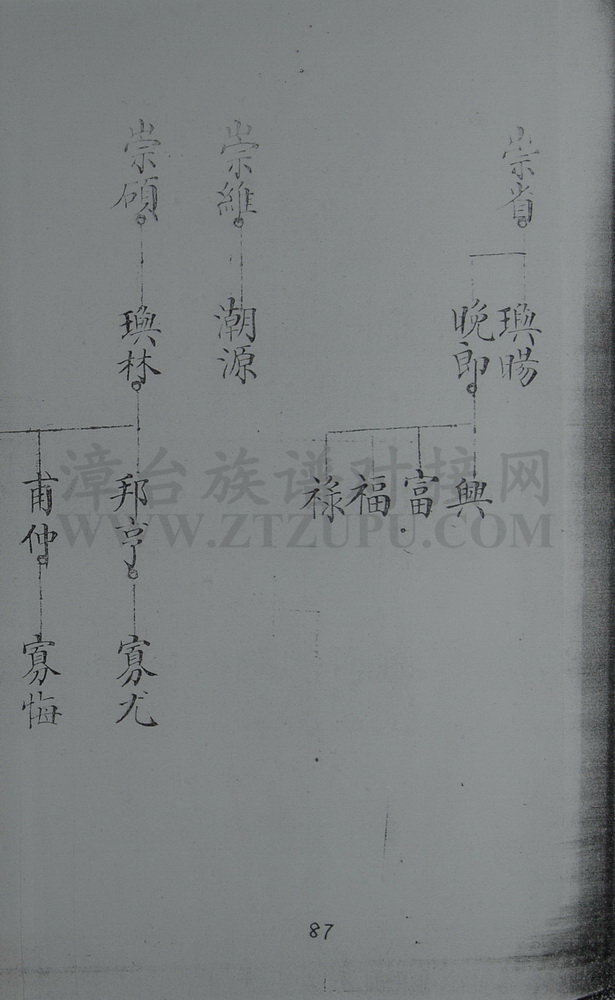 崇省
崇維
崇碩
瑍暘
晚郎
潮源
瑍林
興
富
福
祿
邦亨
甫仲
寡尤
寡悔
漳台族谱对接网
WWW.ZTZUPU.COM
87